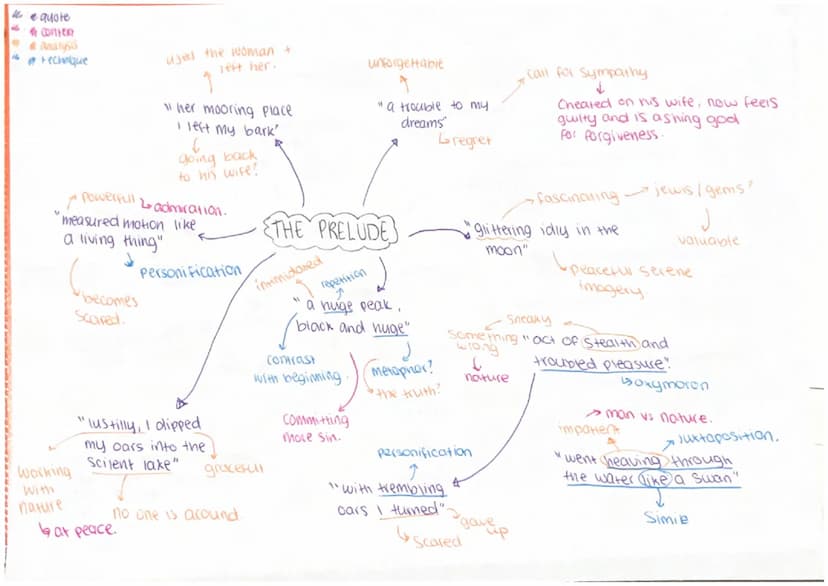 quote
context
analysis
technique
used the woman +
left her.
"her mooring place
I left my bark"
going back
to his wife?
unforgettable
"a trouble to my
dreams"
regret
call for sympathy
Cheated on his wife, now feels
guilty and is asking god
for forgiveness.
powerful
admiration.
"measured motion like
a living thing"
personification
becomes
scared.
THE PRELUDE
fascinating
jewls/gems?
valuable
"glittering idly in the
moon"
peaceful serene
imagery
repetition
"a huge peak,
black and huge"
contrast
with beginning.
metaphor?
the truth?
committing
more sin.
sneaky
something
wrong
nature
"act of stealth and
troubled pleasure"
oxymoron
"lustily, I dipped
my oars into the
scilent lake"
working
with
nature
at peace.
graceful
no one is around
personification
"with trembling
oars I turned"
gave
up
scared
man vs nature.
impatent
juxtaposition.
"went heaving through
the water like a swan"
Simile